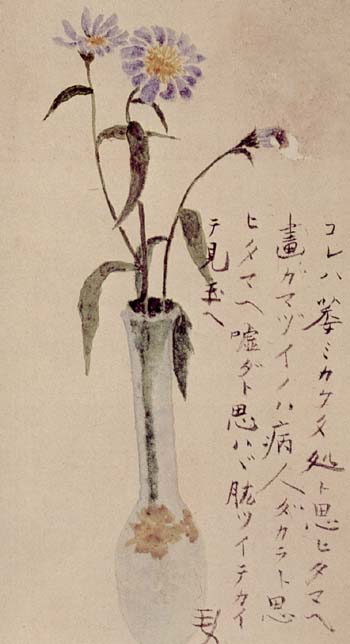 コレハ萎ミカケタ処ト思ヒタマヘ
畫ガマヅイノハ病人ダカラト思
ヒタマヘ嘘ダト思ハヾ肱ツイテカイ
テ見玉ヘ